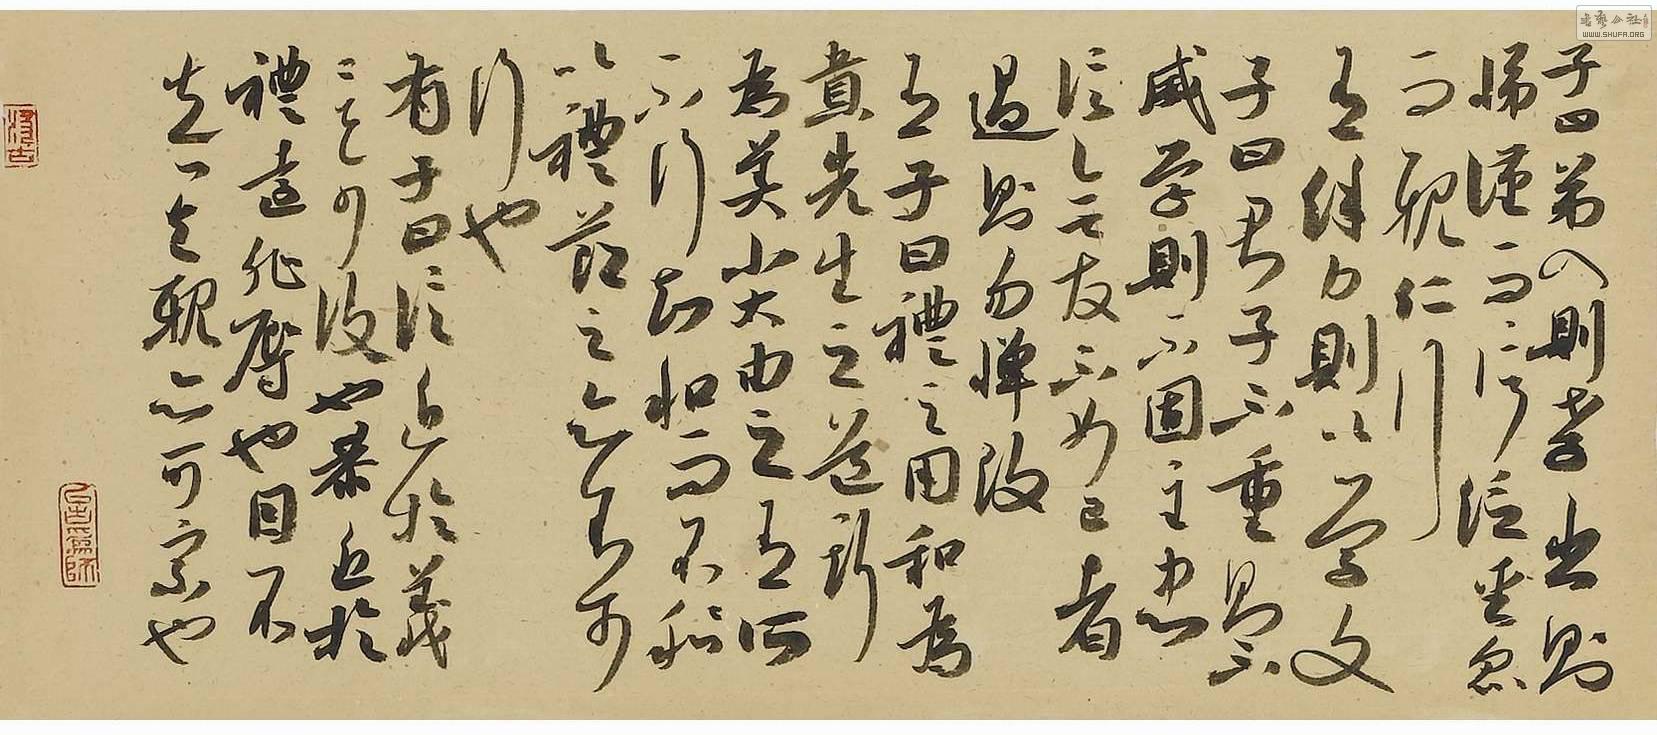 子曰弟入則孝出則
悌謹而信汎愛眾
而親仁行
有餘力則以學文
子曰君子不重則不
威學則不固主忠
信無友不如己者
過則勿憚改
有子曰禮之用和為
貴先生之道斯
為美小大由之有所
不行知和而不和
以禮節之亦不可
行也
有子曰信近於義
言可復也恭近於
禮遠恥辱也因不
失其親亦可宗也
書藝公社
WWW.SHUFA.ORG